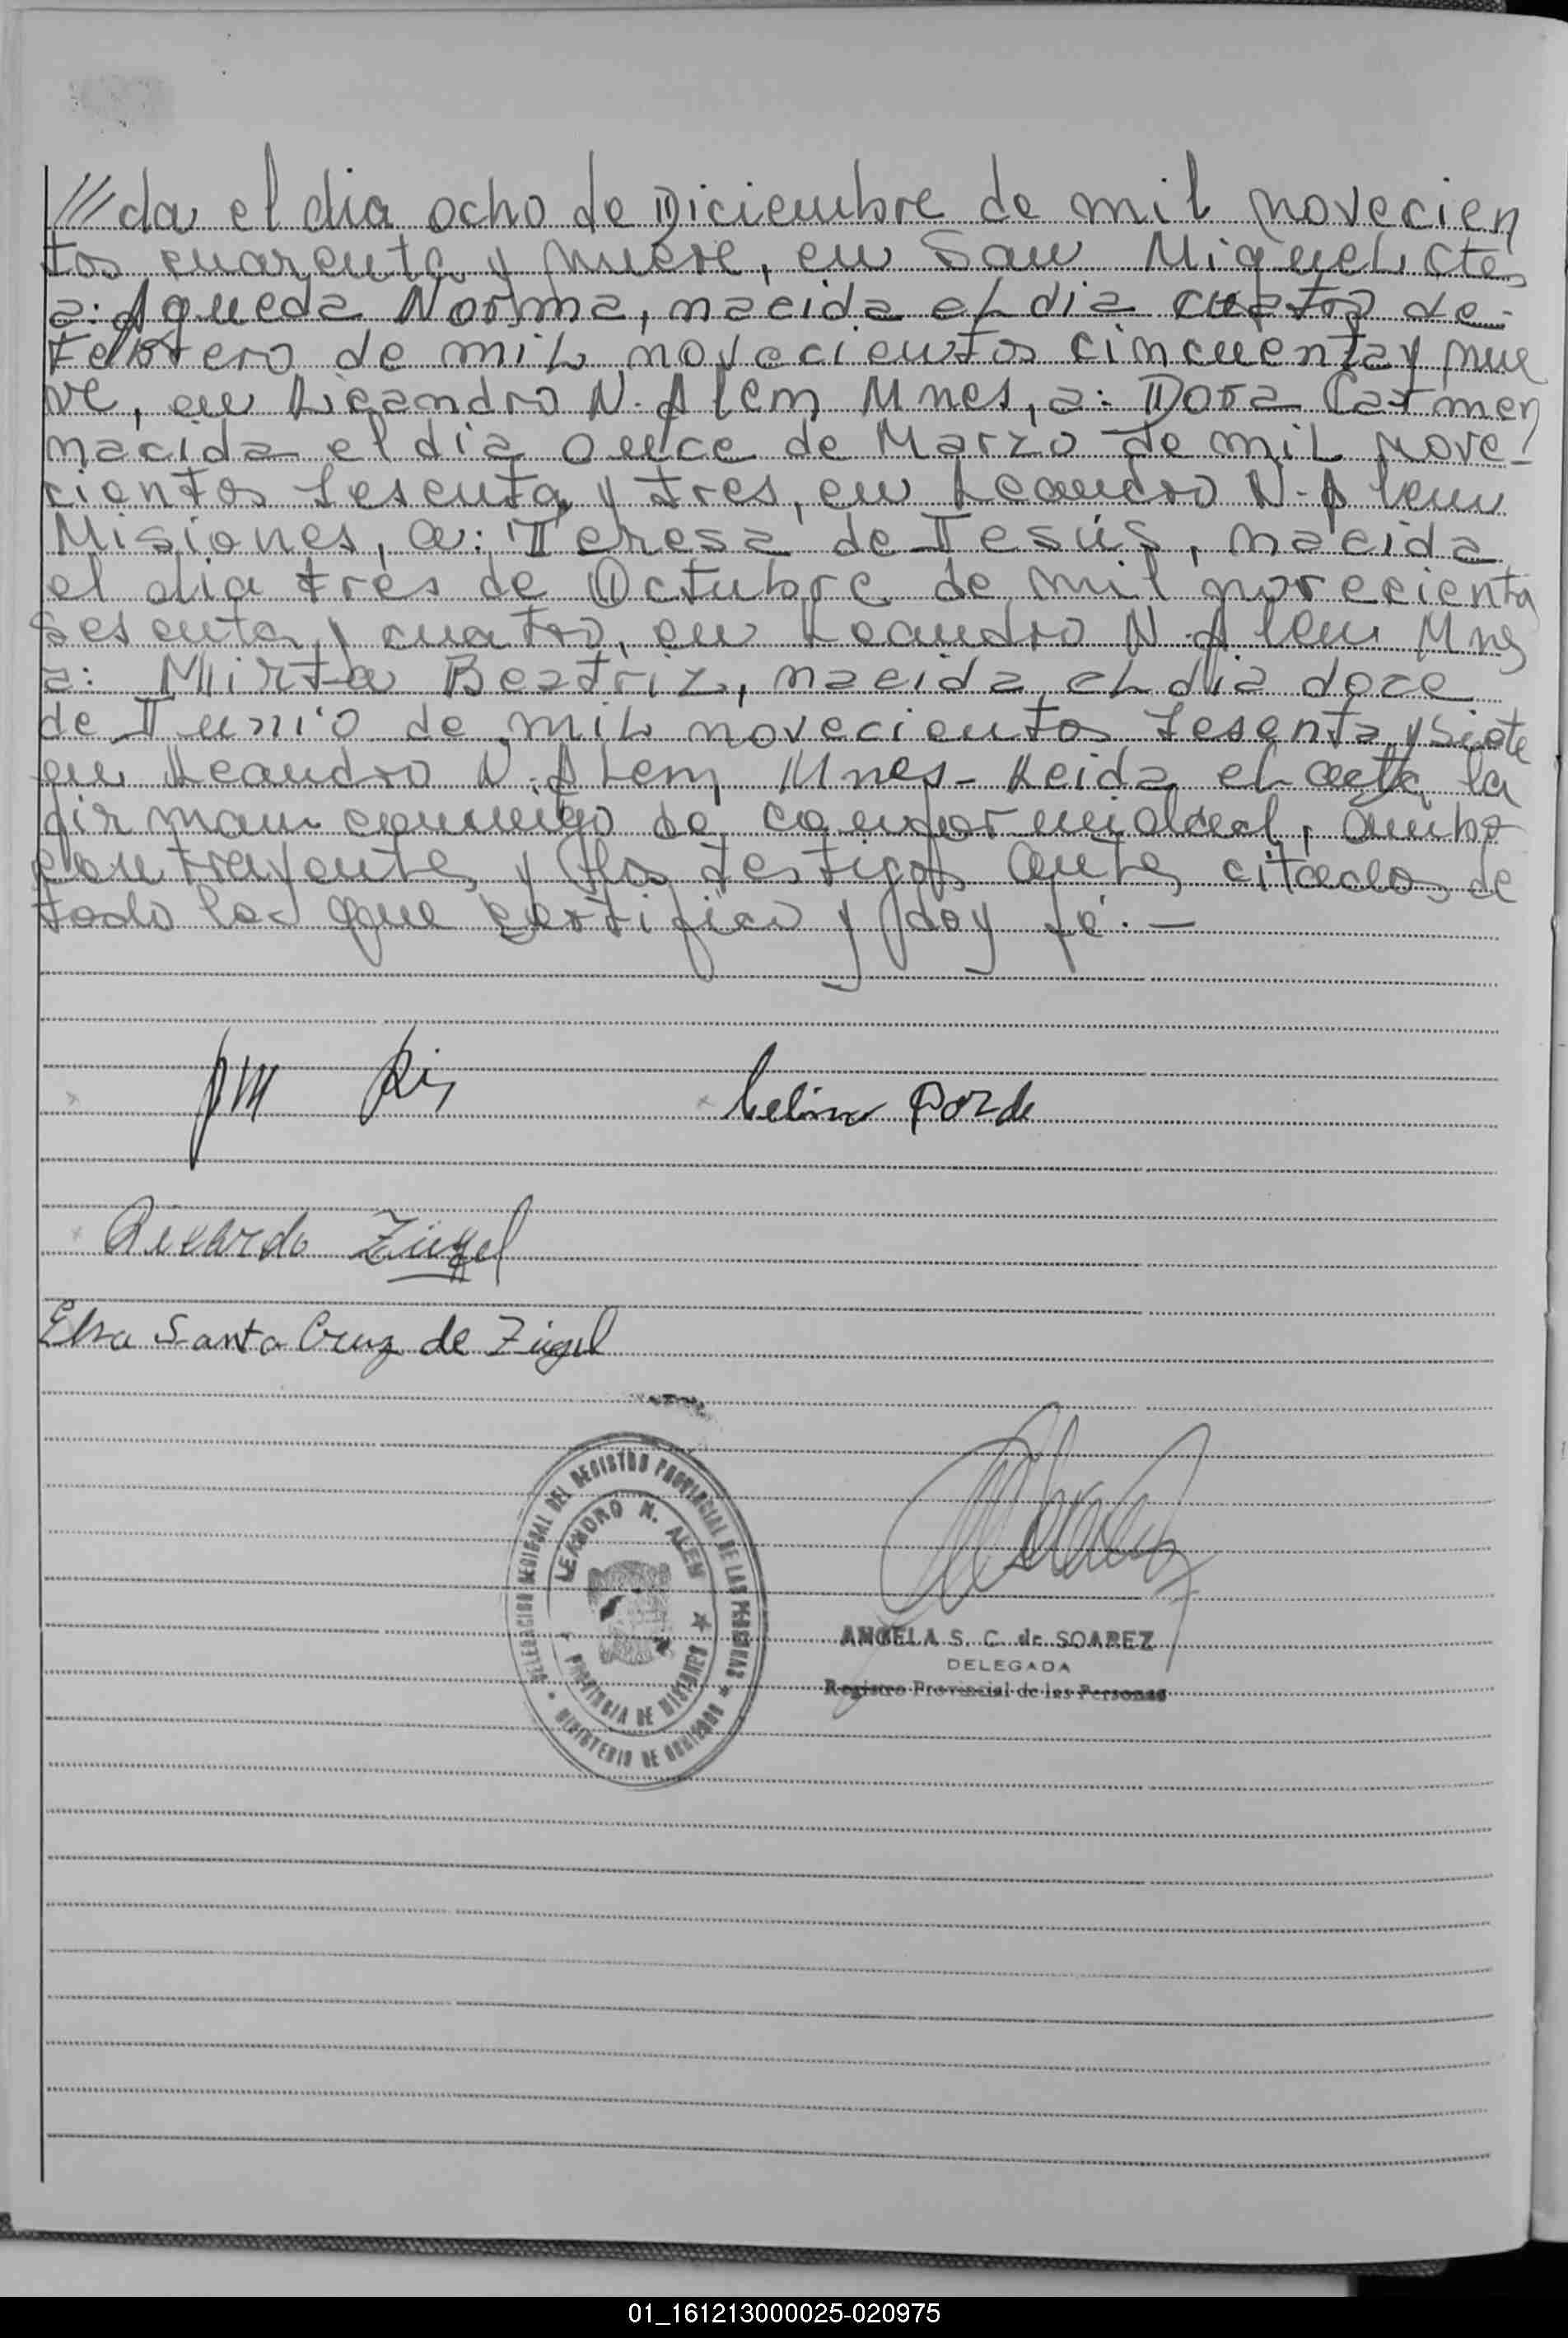 ///da el dia ocho de Diciembre de mil novecien
tos cuarenta y nueve, en San Miguel Ctes
a: Agueda Norma, nacida el dia cuatro de
Febrero de mil novecientos cincuenta y nue
ve, en Leandro N. Alem Mnes, a: Dora Carmen
nacida el dia once de Marzo de mil nove-
cientos sesenta y tres, en Leandro N. Alem
Misiones, a: Teresa de Jesús, nacida
el dia tres de Octubre de mil novecientos
sesenta y cuatro, en Leandro N. Alem Mnes
a: Mirta Beatriz, nacida el dia doce
de Junio de mil novecientos sesenta y siete
en Leandro N. Alem Mnes- Leida el acta la
firman conmigo de conformidad, ambos
contrayentes y los testigos antes citados de
todo lo que certifico y doy fé.-
Ricardo Zügel
Elsa Santa Cruz de Zügel
DELEGACION REGIONAL DEL REGISTRO PROVINCIAL DE LAS PERSONAS
LEANDRO N. ALEM
PROVINCIA DE MISIONES
MINISTERIO DE GOBIERNO
ANGELA S. C. de SOAREZ
DELEGADA
Registro Provincial de las Personas
01_161213000025-020975